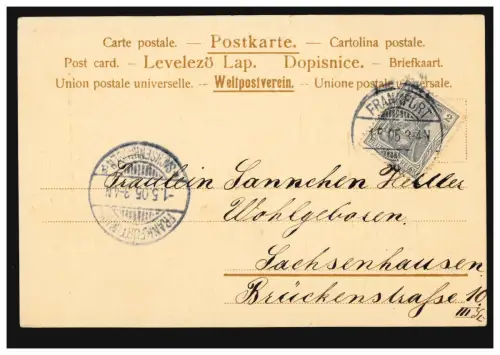 Carte postale. — Postkarte. — Cartolina postale.
Post card. — Levelező Lap. Dopisnice. — Briefkaart.
Union postale universelle. — Weltpostverein. — Unione postale universale.
FRANKFURT
1.5.05. 3-4N
2
FRANKFURT
-1.5.05. 3-4N
Fräulein Sannchen Heller
Wohlgeboren
Sachsenhausen
Brückenstraße 10
III